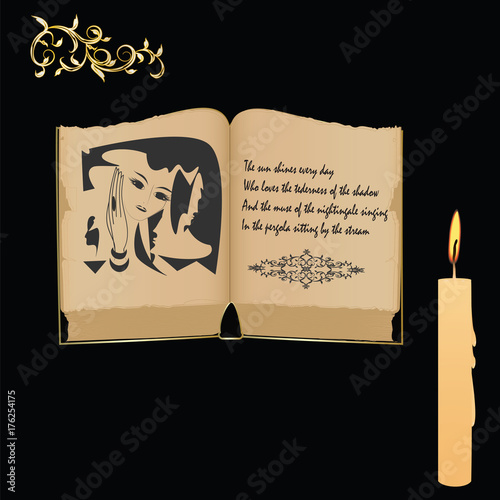 The sun shines every day
Who loves the tederness of the shadow
And the muse of the nightingale singing
In the pergola sitting by the stream
Adobe Stock | #176254175
Adobe Stock